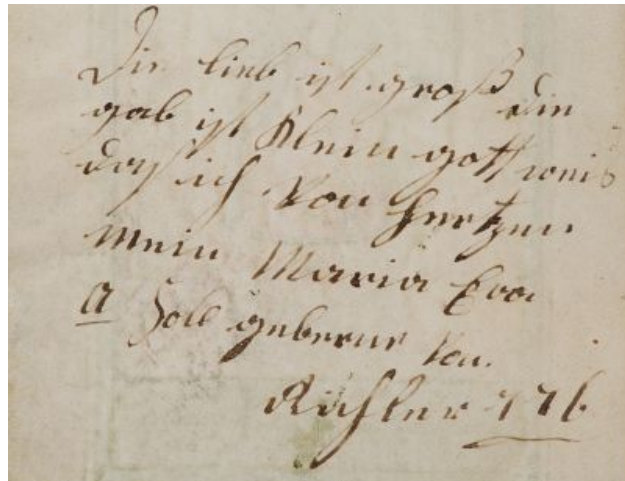 Die lieb ist groß die
gab ist klein gott weis
das ich von hertzen
mein Maria Eva
a geberne Von
Richter 776